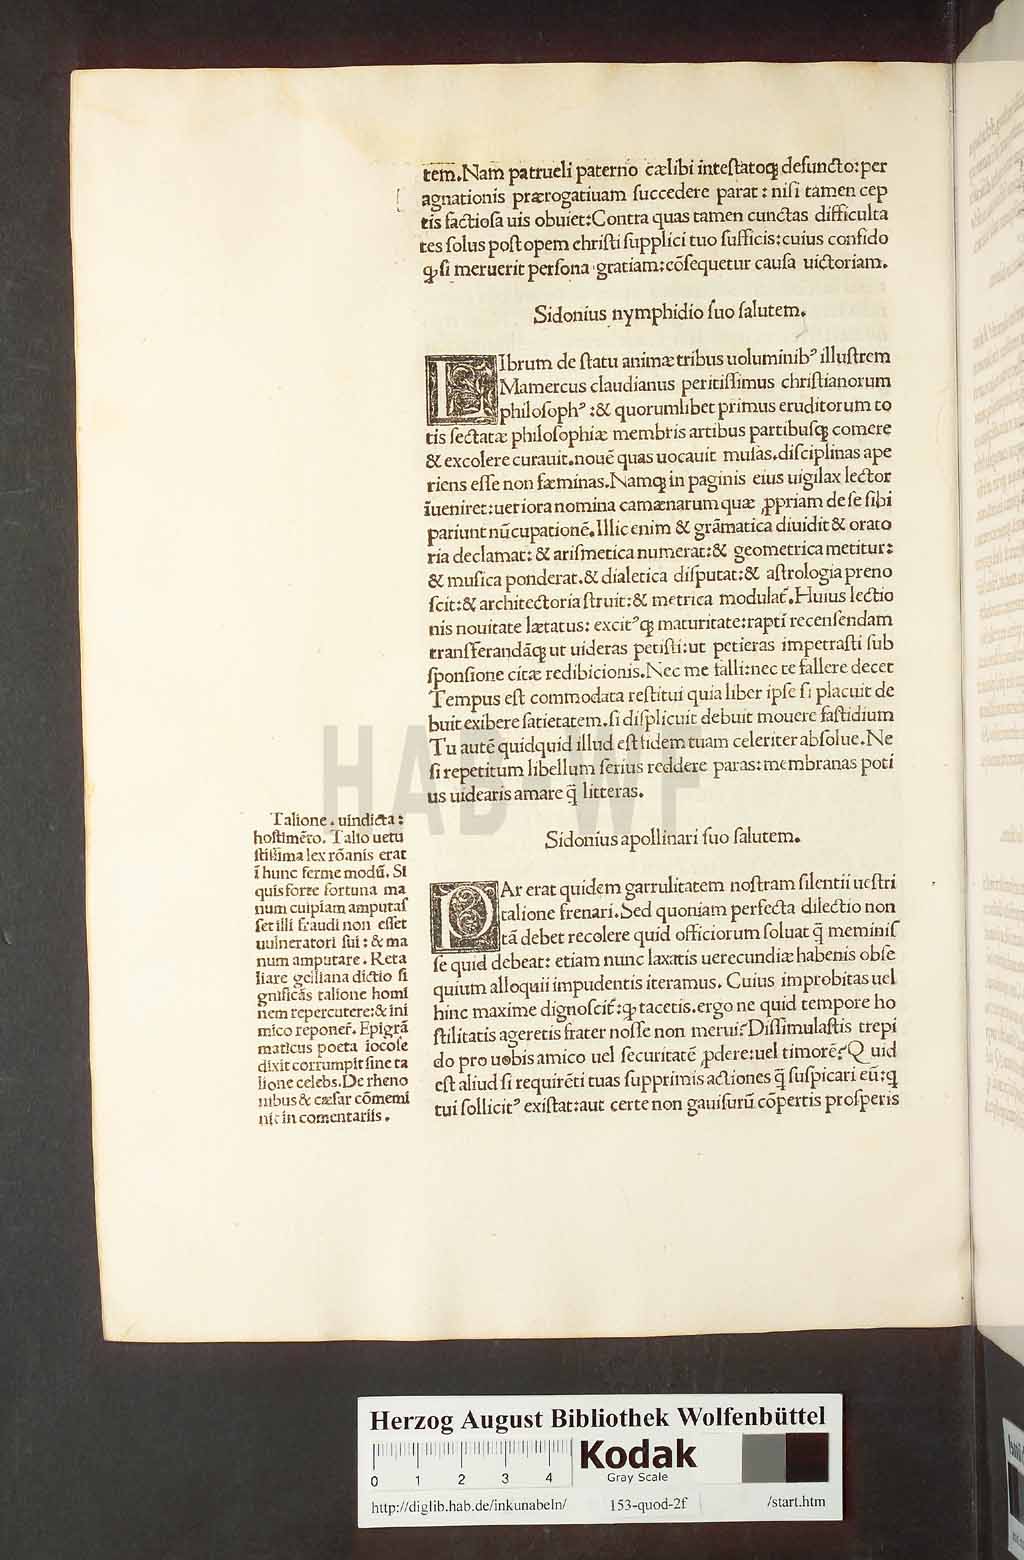 tem.Nam patrueli paterno cælibi intestatoqꝫ defuncto:per
agnationis prærogatiuam succedere parat : nisi tamen cep
tis factiosa uis obuiet:Contra quas tamen cunctas difficulta
tes solus post opem christi supplici tuo sufficis:cuius confido
ꝙ si meruerit persona gratiam:cōsequetur causa uictoriam.
Sidonius nymphidio suo salutem.
LIbrum de statu animæ tribus uoluminibꝰ illustrem
Mamercus claudianus peritissimus christianorum
philosophꝰ :& quorumlibet primus eruditorum to
tis sectatæ philosophiæ membris artibus partibusqꝫ comere
& excolere curauit.nouē quas uocauit musas.disciplinas ape
riens esse non fæminas.Namqꝫ in paginis eius uigilax lector
īueniret:ueriora nomina camænarum quæ ꝓpriam de se sibi
pariunt nūcupationē.Illic enim & grāmatica diuidit & orato
ria declamat: & arismetica numerat:& geometrica metitur:
& musica ponderat.& dialetica disputat:& astrologia preno
scit:& architectoria struit:& metrica modulat᷑.Huius lectio
nis nouitate lætatus: excitꝰqꝫ maturitate:raptī recensendam
transferandāqꝫ ut uideras petisti:ut petieras impetrasti sub
sponsione citæ redibicionis.Nec me falli:nec te fallere decet
Tempus est commodata restitui quia liber ipse si placuit de
buit exibere satietatem.si displicuit debuit mouere fastidium
Tu autē quidquid illud est fidem tuam celeriter absolue.Ne
si repetitum libellum serius reddere paras:membranas poti
us uidearis amare q̄ litteras.
Sidonius apollinari suo salutem.
PAr erat quidem garrulitatem nostram silentii uestri
talione frenari.Sed quoniam perfecta dilectio non
tā debet recolere quid officiorum soluat q̄ meminis
se quid debeat: etiam nunc laxatis uerecundiæ habenis obse
quium alloquii impudentis iteramus. Cuius improbitas uel
hinc maxime dignoscit᷑:ꝙ tacetis.ergo ne quid tempore ho
stilitatis ageretis frater nosse non merui?Dissimulastis trepi
do pro uobis amico uel securitatē ꝓdere:uel timorē?Quid
est aliud si requirēti tuas supprimis actiones q̄ suspicari eū:ꝙ
tui sollicitꝰ existat:aut certe non gauisurū cōpertis prosperis
Talione . uindicta :
hostimēto. Talio uetu
stissima lex rōanis erat
ī hunc ferme modū. Si
quis forte fortuna ma
num cuipiam amputas
set illi fraudi non esset
uulneratori sui : & ma
num amputare . Reta
liare gelliana dictio si
gnificās talione homi
nem repercutere:& ini
mico reponer᷑. Epigrā
maticus poeta iocose
dixit corrumpit sine ta
lione celebs.De rheno
nibus & cæsar cōmemi
nit in comentariis .
HAB WF
Herzog August Bibliothek Wolfenbüttel
0 1 2 3 4
Kodak
Gray Scale
http://diglib.hab.de/inkunabeln/ 153-quod-2f /start.htm